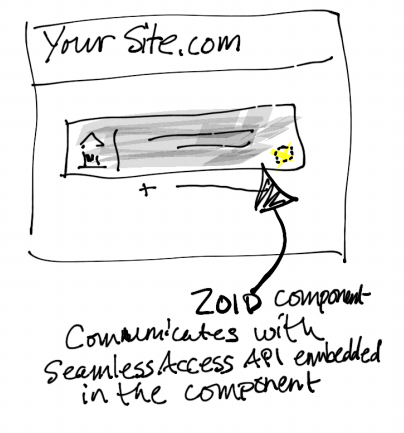 Your Site.com
+
ZOID component
Communicates with
SeamlessAccess API embedded
in the component